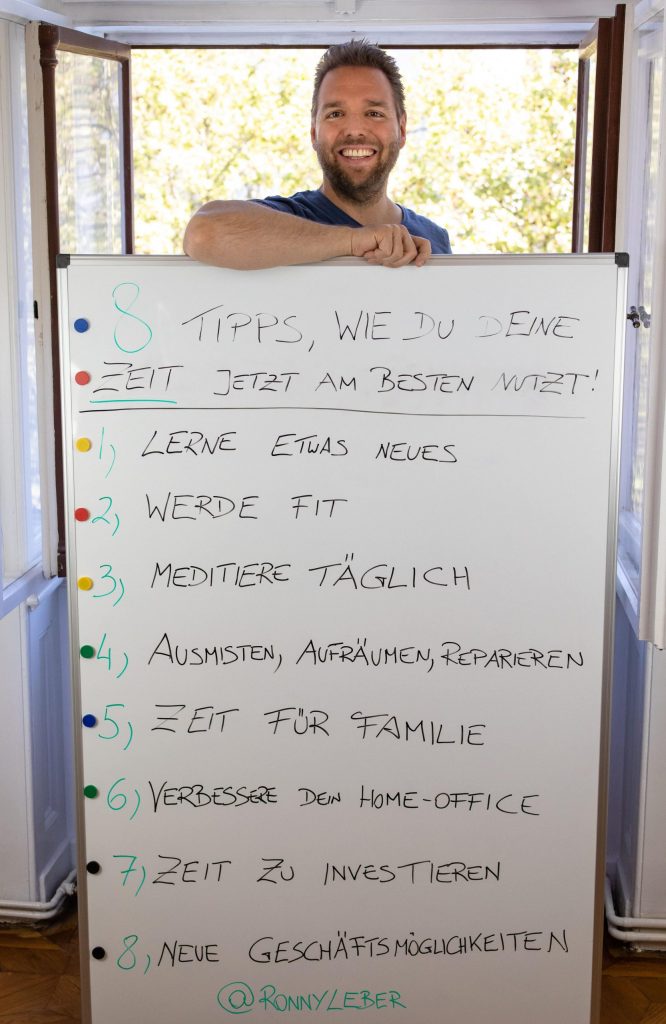 8 TIPPS, WIE DU DEINE
ZEIT JETZT AM BESTEN NUTZT!
1, LERNE ETWAS NEUES
2, WERDE FIT
3, MEDITIERE TÄGLICH
4, AUSMISTEN, AUFRÄUMEN, REPARIEREN
5, ZEIT FÜR FAMILIE
6) VERBESSERE DEIN HOME-OFFICE
7) ZEIT ZU INVESTIEREN
8, NEUE GESCHÄFTSMÖGLICHKEITEN
@RONNYLEBER